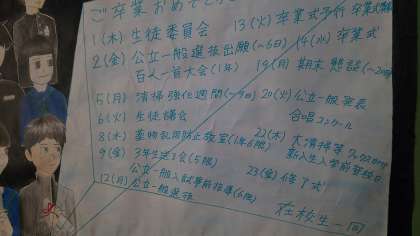 ご卒業おめでとう
1(木)生徒委員会
2(金)公立一般選抜出願(~6日)
百人一首大会(1年)
5(月)清掃強化週間(~9日)
6(火)生徒議会
8(木)薬物乱用防止教室(1年6限)
9(金)3年生送る会(5限)
公立一般入試事前指導(6限)
12(月)公立一般選抜
13(火)卒業式予行 卒業式準備
14(水)卒業式
19(月)期末懇談(~20日)
20(火)公立一般発表
合唱コンクール
22(木)大清掃等
新入生入学前登校日
23(金)修了式
在校生一同